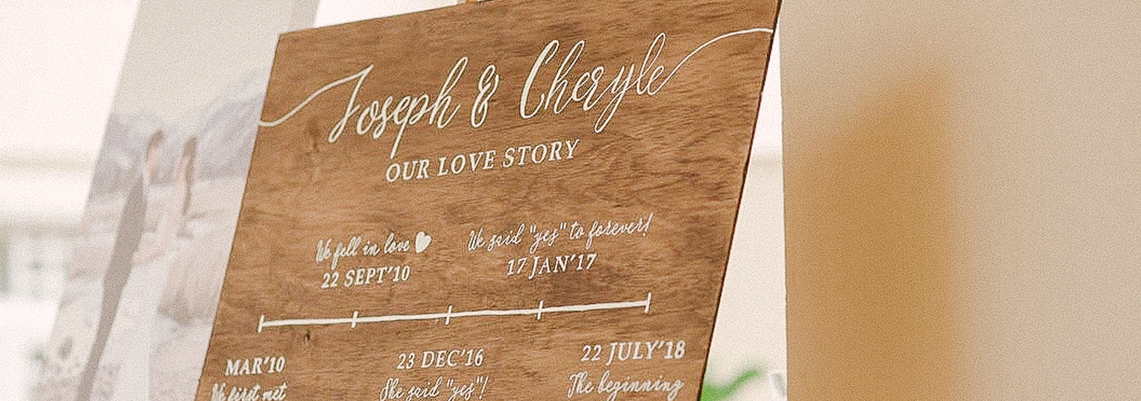 Joseph & Cheryle
OUR LOVE STORY
We fell in love
22 SEPT'10
We said "yes" to forever!
17 JAN'17
MAR'10
We first met
23 DEC'16
She said "yes"!
22 JULY'18
The beginning